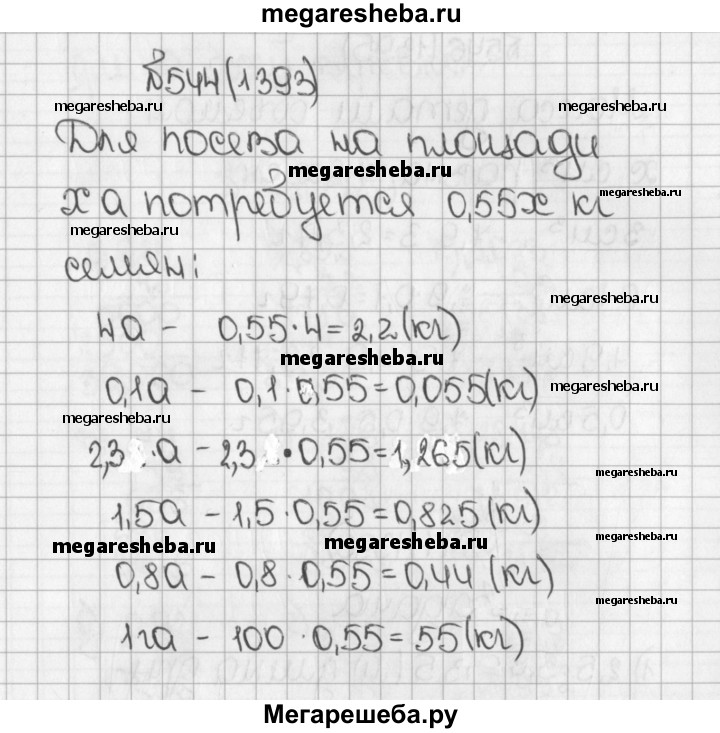 megaresheba.ru
№544(1393)
megaresheba.ru megaresheba.ru
Для посева на площади
megaresheba.ru
х а потребуется 0,55х кг
megaresheba.ru
megaresheba.ru
семян:
megaresheba.ru
4а - 0,55·4=2,2(кг)
megaresheba.ru
0,1а - 0,1·0,55=0,055(кг)
megaresheba.ru
megaresheba.ru
2,3·а - 2,3·0,55=1,265(кг)
megaresheba.ru
1,5а - 1,5·0,55=0,825(кг)
megaresheba.ru megaresheba.ru megaresheba.ru
0,8а - 0,8·0,55=0,44 (кг)
megaresheba.ru
1га - 100·0,55=55(кг)
Мегарешеба.ру